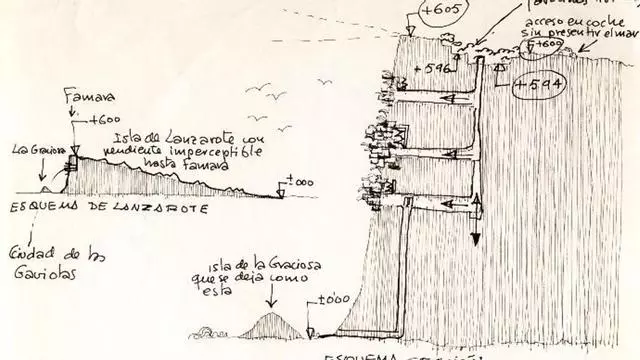 +605
acceso en coche
sin presentir el mar
+600
+596
+594
Famara
+600
La Graciosa
Isla de Lanzarote con
pendiente imperceptible
hasta Famara
±000
ESQUEMA DE LANZAROTE
Ciudad de las
Gaviotas
isla de la Graciosa
que se deja como
esta
±000
ESQUEMA